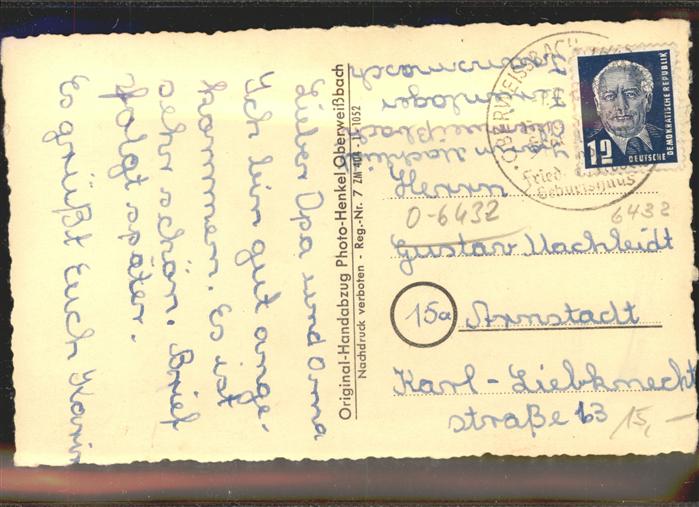 Lieber Opa und Oma
Ich bin gut ange-
kommen. Es ist
sehr schön. Brief
folgt später.
Es grüßt Euch Karin
Original-Handabzug Photo-Henkel Oberweißbach
Nachdruck verboten - Reg.-Nr. 7 ZM 404 - 1052
Oberweißbach
OBERWEISSBACH
Fried.
Geburtshaus
12
DEUTSCHE
DEMOKRATISCHE REPUBLIK
Herrn
0-6432
6432
Gustav Machleidt
15a Arnstadt
Karl-Liebknecht
straße 13
15,-